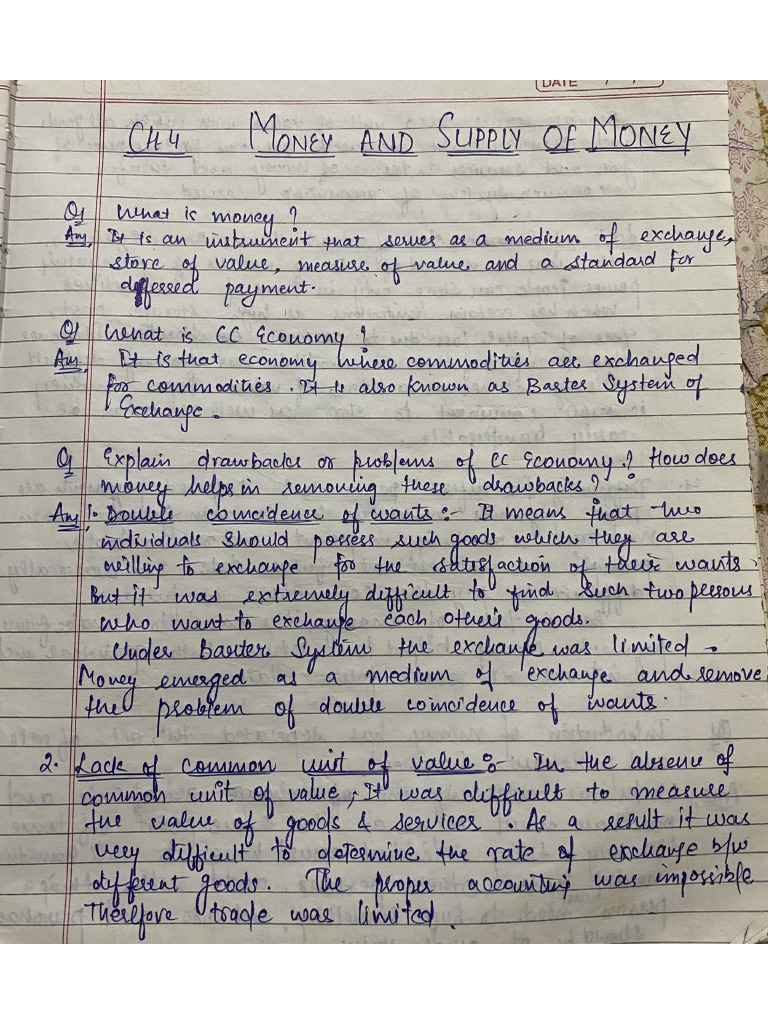 DATE
CH 4 MONEY AND SUPPLY OF MONEY
Q What is money?
Ans, It is an instrument that serves as a medium of exchange,
store of value, measure of value and a standard for
deffered payment.
Q What is CC Economy?
Ans, It is that economy where commodities are exchanged
for commodities. It is also known as Barter System of
Exchange.
Q Explain drawbacks or problems of CC Economy? How does
money helps in removing these drawbacks?
Ans, 1. Double coincidence of wants :- It means that two
individuals should possess such goods which they are
willing to exchange for the satisfaction of their wants.
But it was extremely difficult to find such two persons
who want to exchange each other's goods.
Under Barter System the exchange was limited.
Money emerged as a medium of exchange and remove
the problem of double coincidence of wants.
2. Lack of common unit of value :- In the absence of
common unit of value, It was difficult to measure
the value of goods & services. As a result it was
very difficult to determine the rate of exchange b/w
different goods. The proper accounting was impossible
Therefore trade was limited.